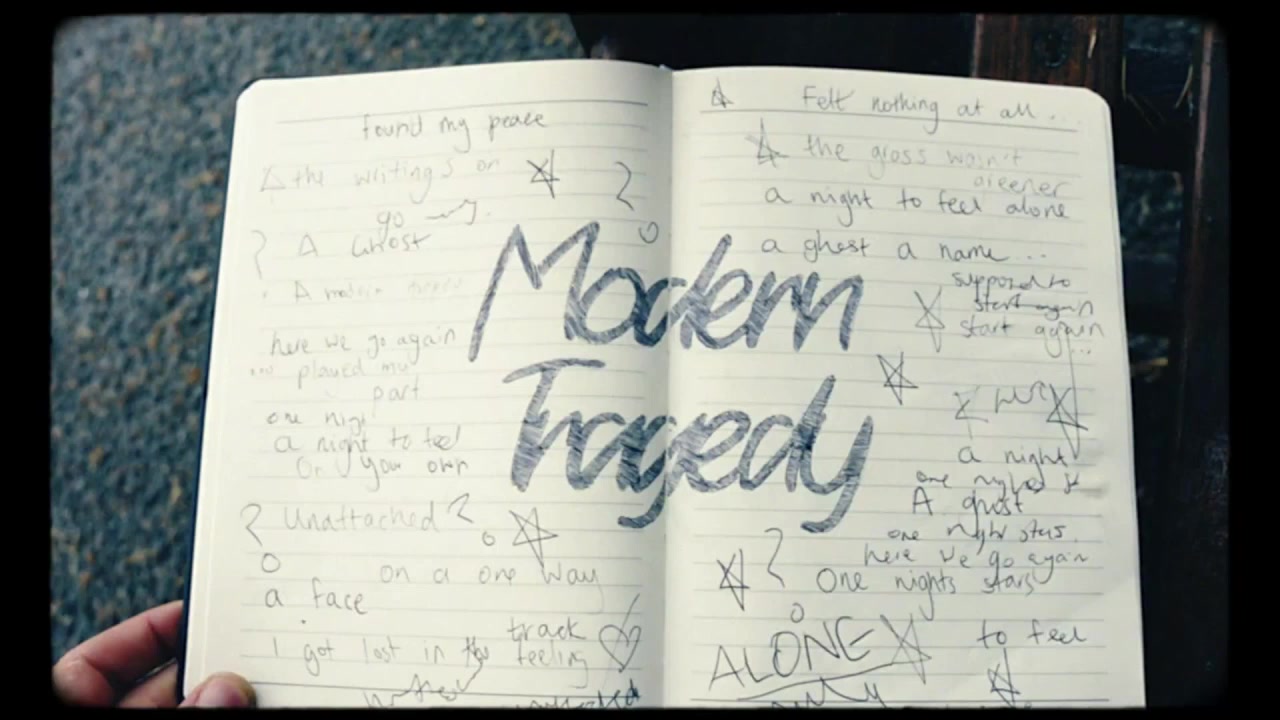 found my peace
the writings on
go
A Ghost
A modern
here we go again
played my
part
one nigh
a night to feel
On your own
Unattached
on a one way
a face
track
I got lost in the feeling
Modern
Tragedy
Felt nothing at all...
the grass wasn't
greener
a night to feel alone
a ghost a name...
supposed to
start again
start again
...
a night
one nights
A ghost
one night stars.
here we go again
One nights stars
ALONE
to feel
only